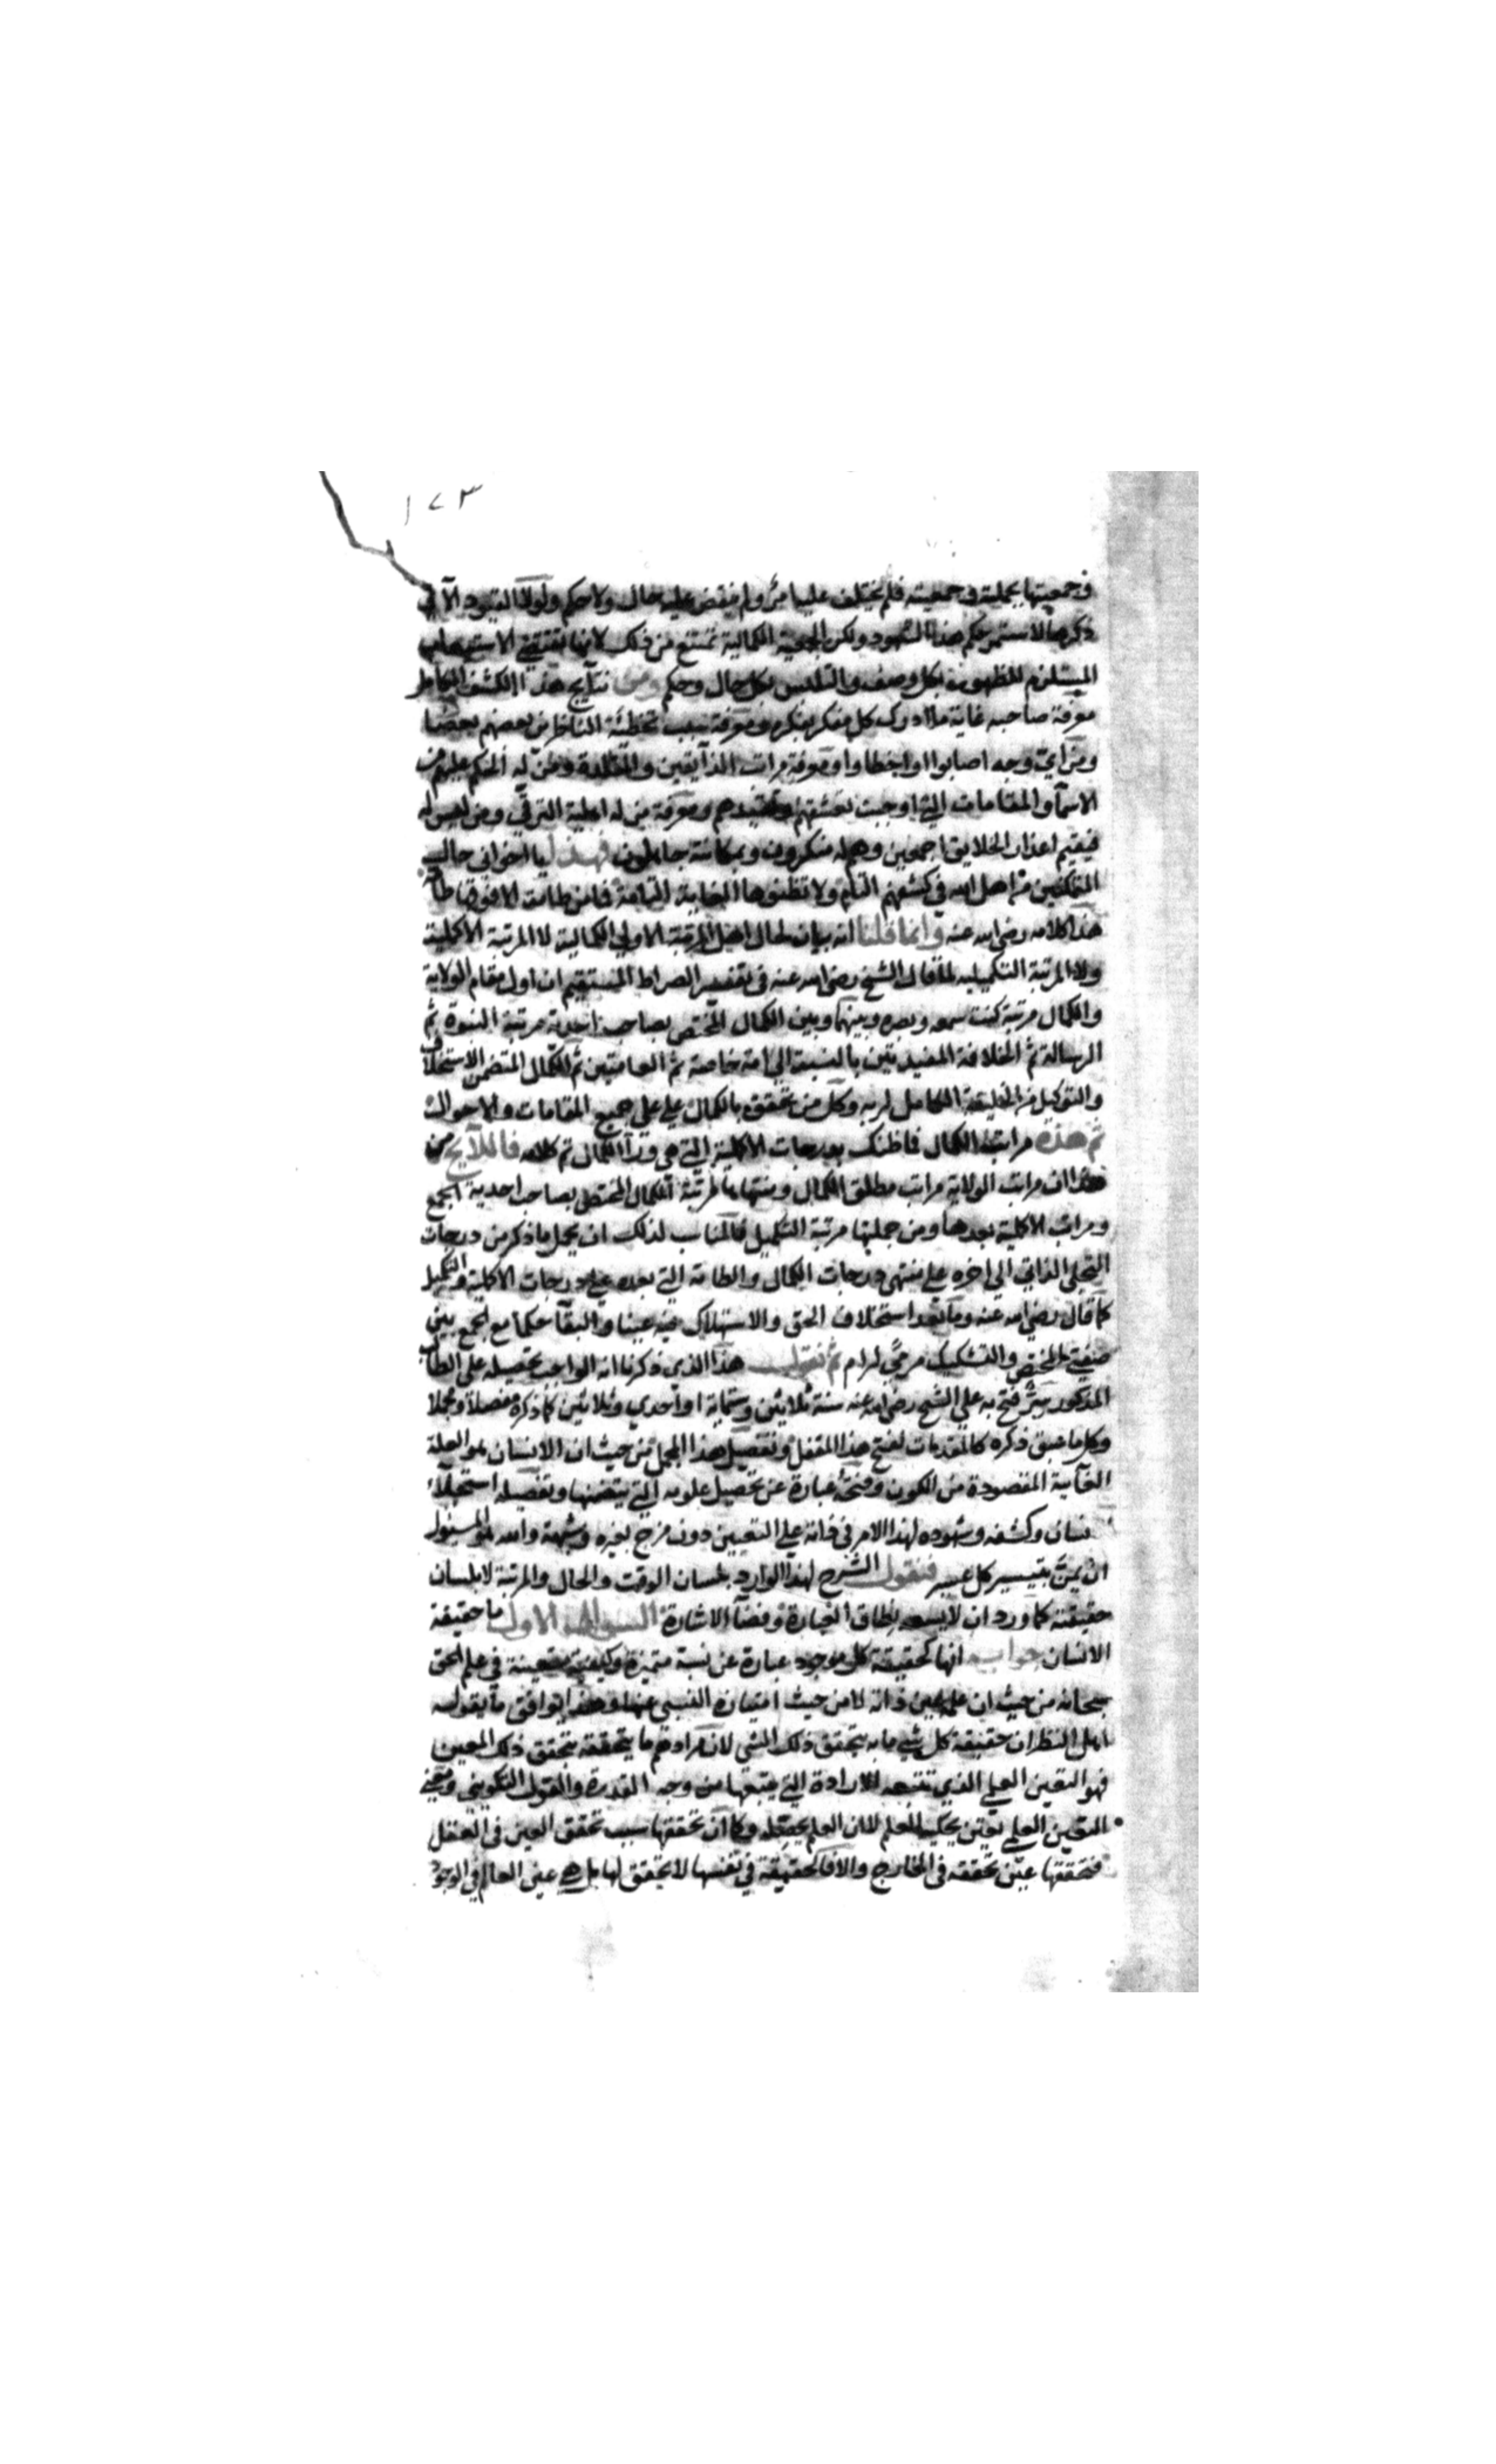 ١٧٣
في جمعيتها بجملته في جمعيته فلم يختلف عليها مرّ ولم ينقض عليه حال ولا حكم ولولا القيود الآتي
ذكرها لاستمر حكم هذا الشهود ولكن الجمعية الكمالية تمنع من ذلك لانها تقتضي الاستيعاب
المستلزم للظهور بكل وصف والتلبس بكل حال وحكم ومن نتايج هذا الكشف الكامل
معرفة صاحبه غاية ما ادرك كل مفكر بفكره ومعرفة سبب تخطئة الناظرين بعضهم بعضا
ومن اي وجه اصابوا او اخطاوا ومعرفة مراتب الذايقين والمقلدة ومن له الحكم عليهم من
الاسمآ والمقامات التي اوجبت تعشقهم وتقيدهم ومعرفة من له اهلية الترقي ومن ليس له
فيقيم اعذار الخلايق اجمعين وهم له منكرون وبمكانته جاهلون فهذا يا اخواني حال
المتمكنين من اهل الله في كشفهم التام ولا تظنوها الغاية التامة فما من طامة الا وفوقها طامة
هذا كلامه رضي الله عنه وانما قلنا انه بيان لحال اهل المرتبة الاولى الكمالية لا المرتبة الاكملية
ولا المرتبة التكميلية لما قال الشيخ رضي الله عنه في تفسير الصراط المستقيم ان اول مقام الولاية
والكمال مرتبة كنت سمعه وبصره وبينهما وبين الكمال المختص بصاحب احدية مرتبة النبوة ثم
الرسالة ثم الخلافة المقيدتين بالنسبة الى امة خاصة ثم العامتين ثم الكمال المتضمن الاستخلاف
والتوكيل من الخليقة الكامل لربه وكل من تحقق بالكمال علي على جميع المقامات والاحوال
ثم هذه مراتب الكمال فما ظنك بدرجات الاكملية التي هي ورآ الكمال تم كلامه فاللايح من
هذا ان مراتب الولاية مراتب مطلق الكمال ومنتهاها مرتبة الكمال المختص بصاحب احدية الجمع
ومراتب الاكملية بعدها ومن جملتها مرتبة التكميل فالمناسب لذلك ان يحمل ما ذكر من درجات
التجلي الذاتي الى اخره على منتهى درجات الكمال والطامة التي بعده على درجات الاكملية والتكميل
كما قال رضي الله عنه وما بعد استخلاف الحق والاستهلاك فيه عينا والبقآ حكما مع الجمع بين
صفتي المختص والتشكيك مرمىً لرام ثم نقول هذا الذي ذكرنا انه الواجب تحصيله على الطالب
المذكور سرّ فتح به على الشيخ رضي الله عنه سنة ثلاثين وستماية او احدى وثلاثين كما ذكره مفصلا ومجملا
وكل ما سبق ذكره كالمقدمات لفتح هذا المقفل وتفصيل هذا المجمل من حيث ان الانسان هو العلة
الغائية المقصودة من الكون وفتحه عبارة عن تحصيل علومه التي يتضمنها وتفصيله استجلاء
نسان وكشفه وشهوده لهذا الامر في ذاته على التعيين دون مزج بغيره وشبهة والله المسئول
ان يمنّ بتيسير كل عسير فنقول الشرح لهذا الوارد بلسان الوقت والحال والمرتبة لا بلسان
حقيقته كما ورد ان لا يسعه نطاق العبارة وفضآ الاشارة السؤال الاول ما حقيقة
الانسان جوابه انها كحقيقة كل موجود عبارة عن نسبة متميزة وكيفية متعينة في علم الحق
سبحانه من حيث ان علمه عين ذاته لا من حيث امتيازه النسبي عنها وهذا يوافق ما يقوله
اهل النظر ان حقيقة كل شي ما به يتحقق ذلك الشي لان مرادهم ما يتحققه يتحقق ذلك المعين
فهو التعين العلمي الذي تتبعه الارادة التي يتبعها من وجه القدرة والقول التكويني ومعنى
التعين العلمي تعين يحكيه العلم لان العلم يجعله وكما ان تحققها سبب تحقق العين في العقل
فتحققها عين تحققه في الخارج والا فالحقيقة في نفسها لا تحقق لها بل هي عين العالم في الوجود